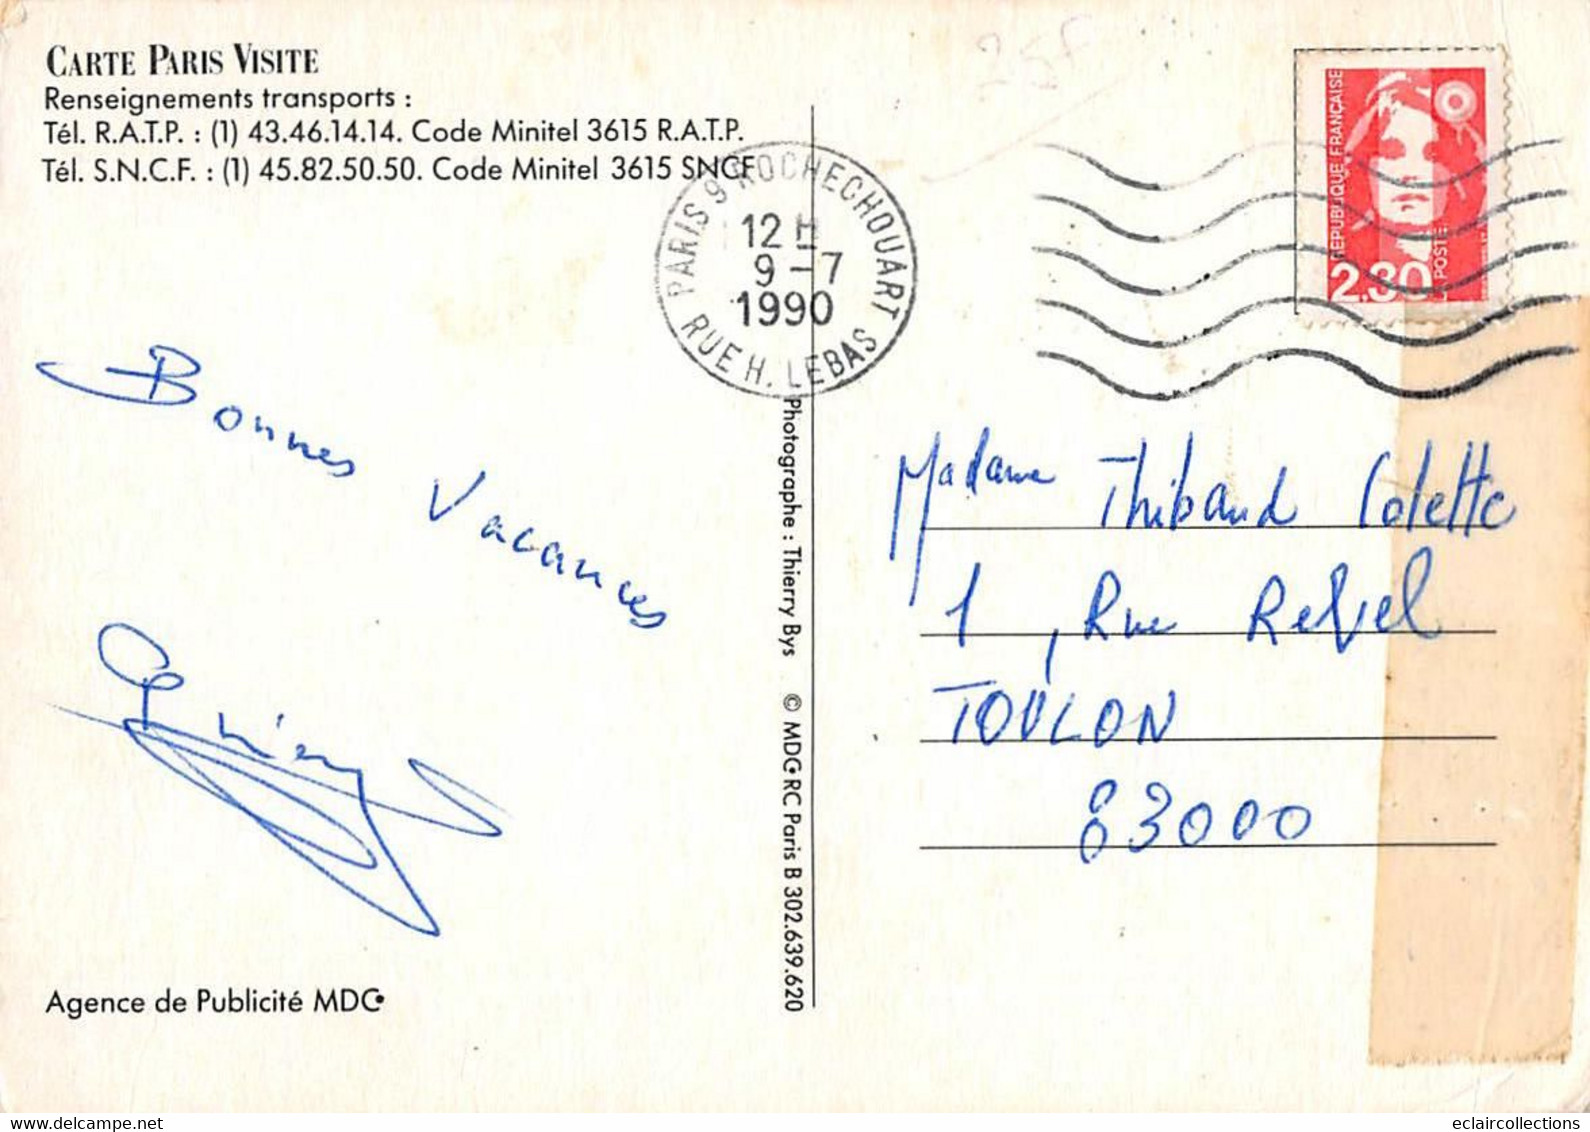 CARTE PARIS VISITE
Renseignements transports :
Tél. R.A.T.P. : (1) 43.46.14.14. Code Minitel 3615 R.A.T.P.
Tél. S.N.C.F. : (1) 45.82.50.50. Code Minitel 3615 SNCF
25F
PARIS 9 ROCHECHOUART
12 H
9-7
1990
RUE H. LEBAS
REPUBLIQUE FRANÇAISE
POSTE
2,30
Bonnes Vacances
Photographe : Thierry Bys © MDC RC Paris B 302.639.620
Madame Thibaud Colette
1, Rue Revel
TOULON
83000
Agence de Publicité MDC
delcampe.net
eclaircollections